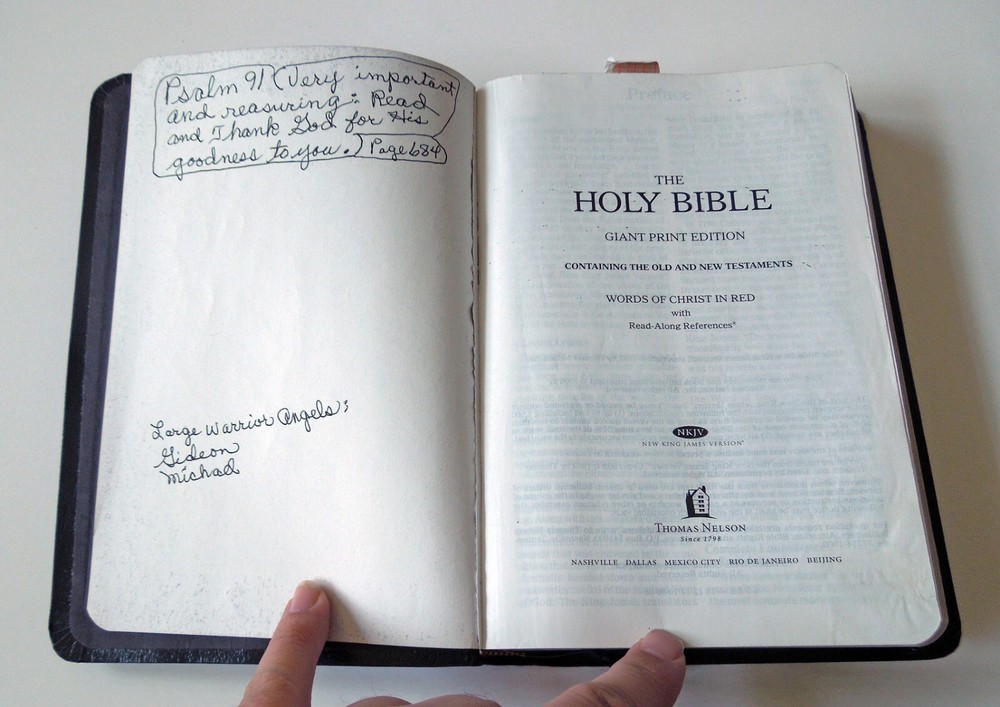 Psalm 91 (Very important
and reasuring: Read
and Thank God for His
goodness to you.) Page 684
Large Warrior Angels:
Gideon
Michael
Preface
THE
HOLY BIBLE
GIANT PRINT EDITION
CONTAINING THE OLD AND NEW TESTAMENTS
WORDS OF CHRIST IN RED
with
Read-Along References®
NKJV
NEW KING JAMES VERSION®
THOMAS NELSON
Since 1798
NASHVILLE DALLAS MEXICO CITY RIO DE JANEIRO BEIJING